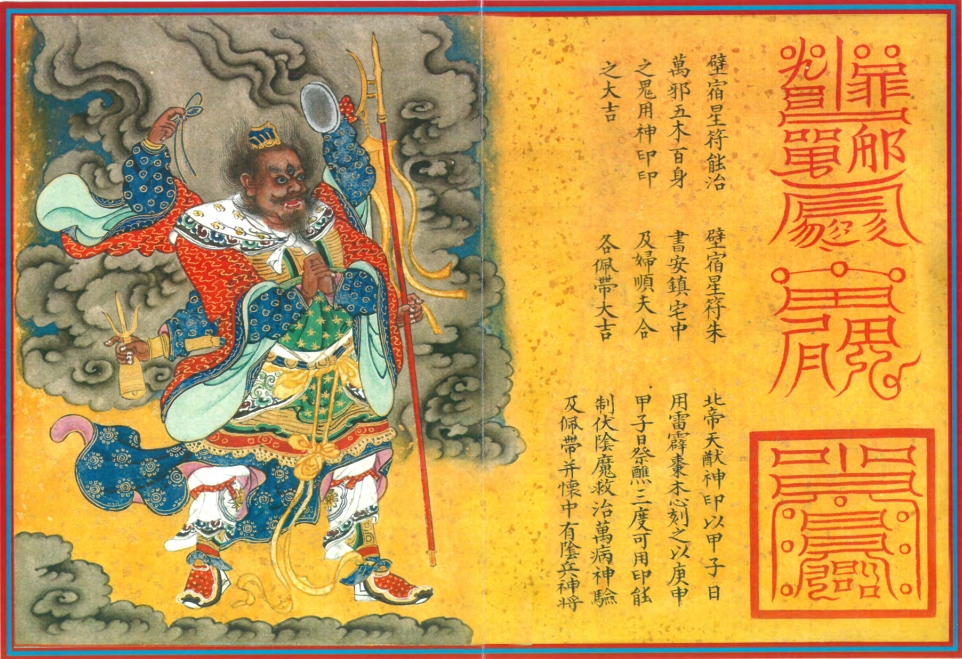 壁宿星符能治
萬邪五木百身
之鬼用神印印
之大吉
壁宿星符朱
書安鎮宅中
及婦順夫合
各佩帶大吉
北帝天猷神印以甲子日
用雷霹棗木心刻之以庚申
甲子日祭醮三度可用印能
制伏陰魔救治萬病神驗
及佩帶并懷中有陰兵神将